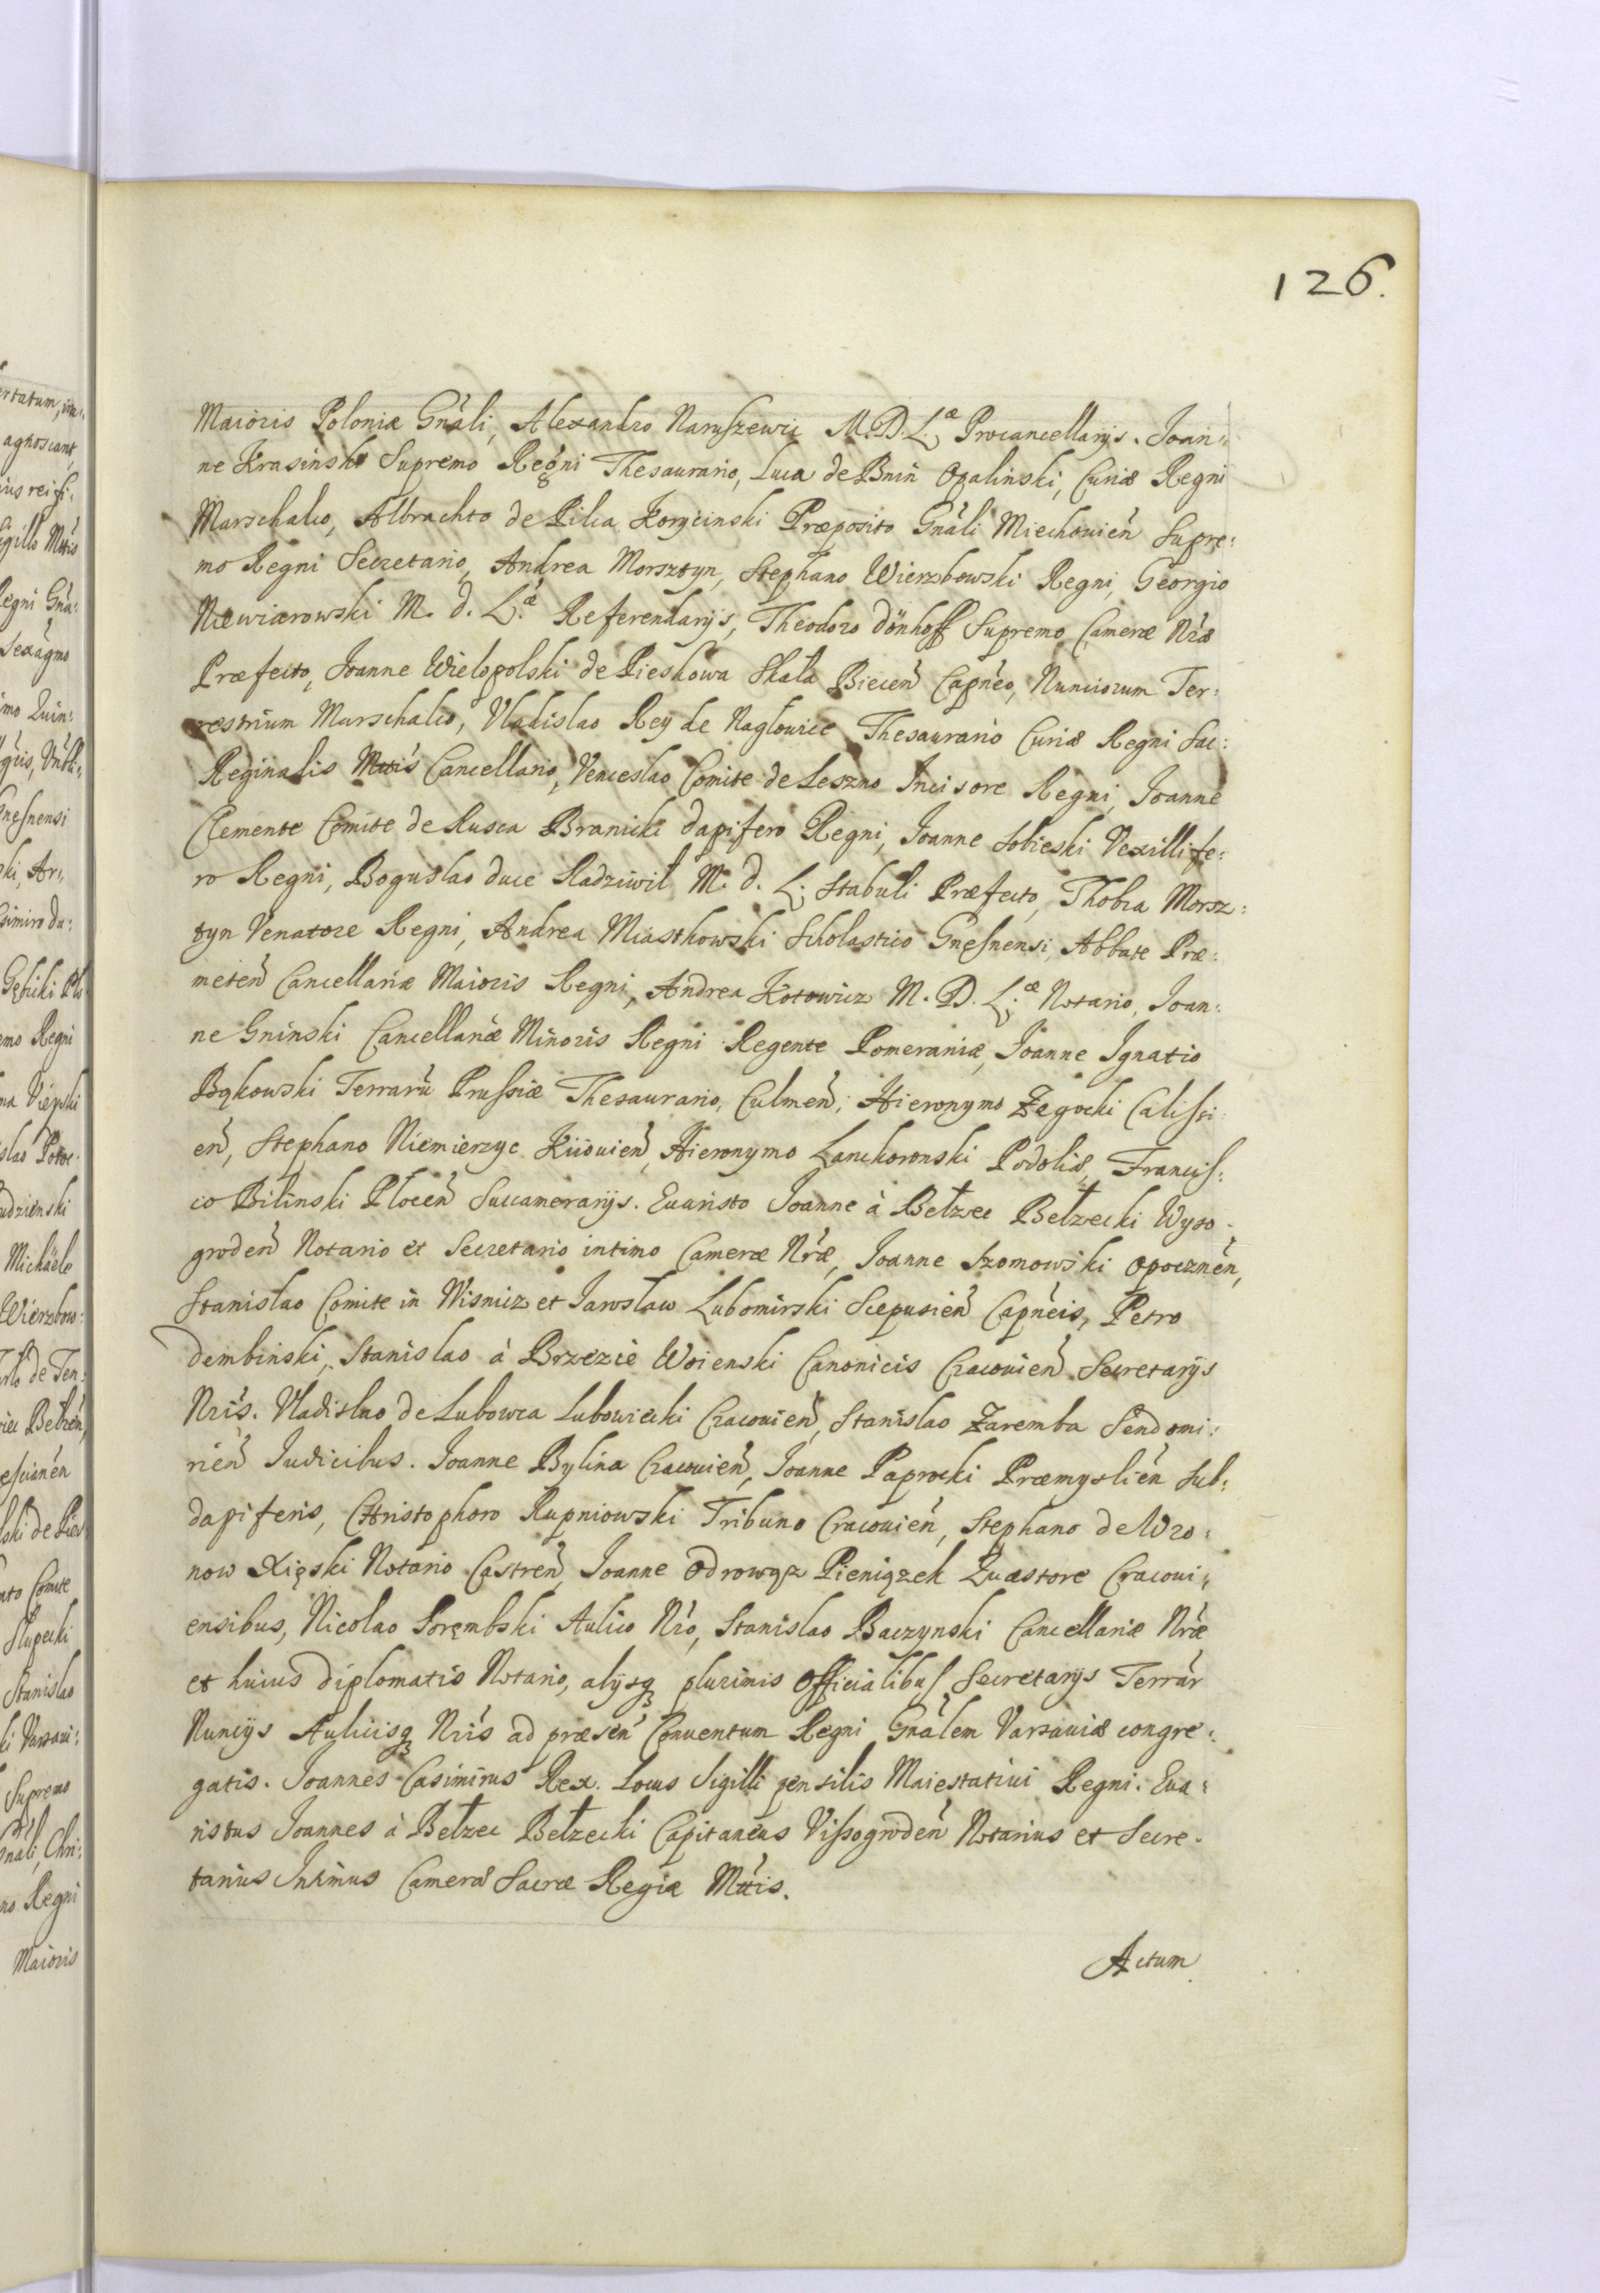 126.
Maioris Poloniæ Gnäli, Alexandro Naruszewic M.D.L.æ Procancellarijs. Joan:
ne Krasinski Supremo Regni Thesaurario, Luca de Bnin Opalinski, Curiæ Regni
Marschalco, Albrachto de Pilca Korycinski Præposito Gnäli Miechouień Supre:
mo Regni Secretario, Andrea Morsztyn, Stephano Wierzbowski Regni, Georgio
Niewiarowski M. d. L.æ Referendarijs, Theodoro Dönhoff Supremo Cameræ Nræ
Præfecto, Joanne Wielopolski de Pieskowa Skała Biecen Capneo, Nunciorum Ter:
restrium Marschalco, Vladislao Rey de Naglowice Thesaurario Curiæ Regni Sac:
Reginalis Mttis Cancellario, Venceslao Comite de Leszno Incisore Regni, Joanne
Clemente Comite de Rusca Branicki dapifero Regni, Joanne Sobieski Vexillife:
ro Regni, Boguslao duce Radziwił M. d. L. Stabuli Præfecto, Thobia Morsz:
tyn Venatore Regni, Andrea Miastkowski Scholastico Gnesnensi, Abbate Præ:
meten Cancellariæ Maioris Regni, Andrea Kotowicz M. D. L.æ Notario, Joan:
ne Gninski Cancellariæ Minoris Regni Regente Pomeraniæ, Joanne Ignatio
Bąkowski Terraru Prussiæ Thesaurario, Culmen, Hieronymo Zegocki Calissi:
en, Stephano Niemierzyc Kiiouien, Hieronymo Lanckoronski Podoliæ, Francis:
co Bilinski Płocen Succamerarijs. Euaristo Joanne à Bełzec Bełzecki Wyso:
groden Notario et Secretario intimo Cameræ Nræ, Joanne Szomowski Opocznen,
Stanislao Comite in Wisnicz et Jaroslaw Lubomirski Scepusien Capneis, Petro
dembinski, Stanislao à Brzezie Woienski Canonicis Cracouien Secretarijs
Nris. Vladislao de Lubowca Lubowiecki Cracouien, Stanislao Zaremba Sendomi:
rien Iudicibus. Joanne Bylina Cracouien, Joanne Paprocki Præmyslien Sub:
dapiferis, Christophoro Rupniowski Tribuno Cracouien, Stephano de Wro:
now Xięski Notario Castren, Joanne Odrowąz Pieniązek Quæstore Cracoui:
ensibus, Nicolao Porembski Aulico Nro, Stanislao Baczynski Cancellariæ Nræ
et huius diplomatis Notario, alijsq plurimis Officialibus Secretarijs Terrar
Nuncijs Aulicisq Nris ad præsen Conuentum Regni Gnälem Varsauiæ congre:
gatis. Joannes Casimirus Rex. Locus Sigilli pensilis Maiestatiui Regni. Eua:
ristus Joannes à Bełzec Bełzecki Capitaneus Vissogroden Notarius et Secre:
tarius Intimus Cameræ Sacræ Regiæ Mttis.
Actum